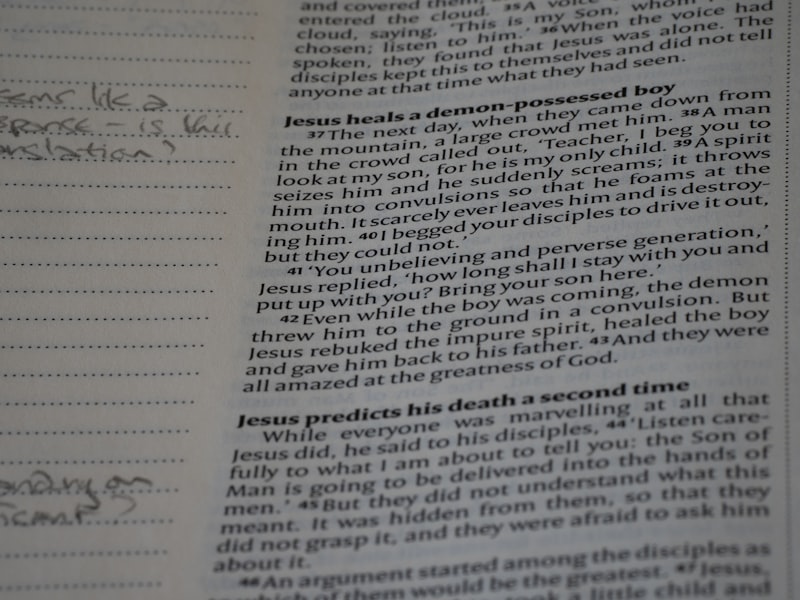 and covered them,
entered the cloud. 35 A voice
cloud, saying, 'This is my Son, whom
chosen; listen to him.' 36 When the voice had
spoken, they found that Jesus was alone. The
disciples kept this to themselves and did not tell
anyone at that time what they had seen.
Jesus heals a demon-possessed boy
37 The next day, when they came down from
the mountain, a large crowd met him. 38 A man
in the crowd called out, 'Teacher, I beg you to
look at my son, for he is my only child. 39 A spirit
seizes him and he suddenly screams; it throws
him into convulsions so that he foams at the
mouth. It scarcely ever leaves him and is destroy-
ing him. 40 I begged your disciples to drive it out,
but they could not.'
41 'You unbelieving and perverse generation,'
Jesus replied, 'how long shall I stay with you and
put up with you? Bring your son here.'
42 Even while the boy was coming, the demon
threw him to the ground in a convulsion. But
Jesus rebuked the impure spirit, healed the boy
and gave him back to his father. 43 And they were
all amazed at the greatness of God.
Jesus predicts his death a second time
While everyone was marvelling at all that
Jesus did, he said to his disciples, 44 'Listen care-
fully to what I am about to tell you: the Son of
Man is going to be delivered into the hands of
men.' 45 But they did not understand what this
meant. It was hidden from them, so that they
did not grasp it, and they were afraid to ask him
about it.
46 An argument started among the disciples as
which of them would be the greatest. 47 Jesus,
took a little child and
like a
– is this